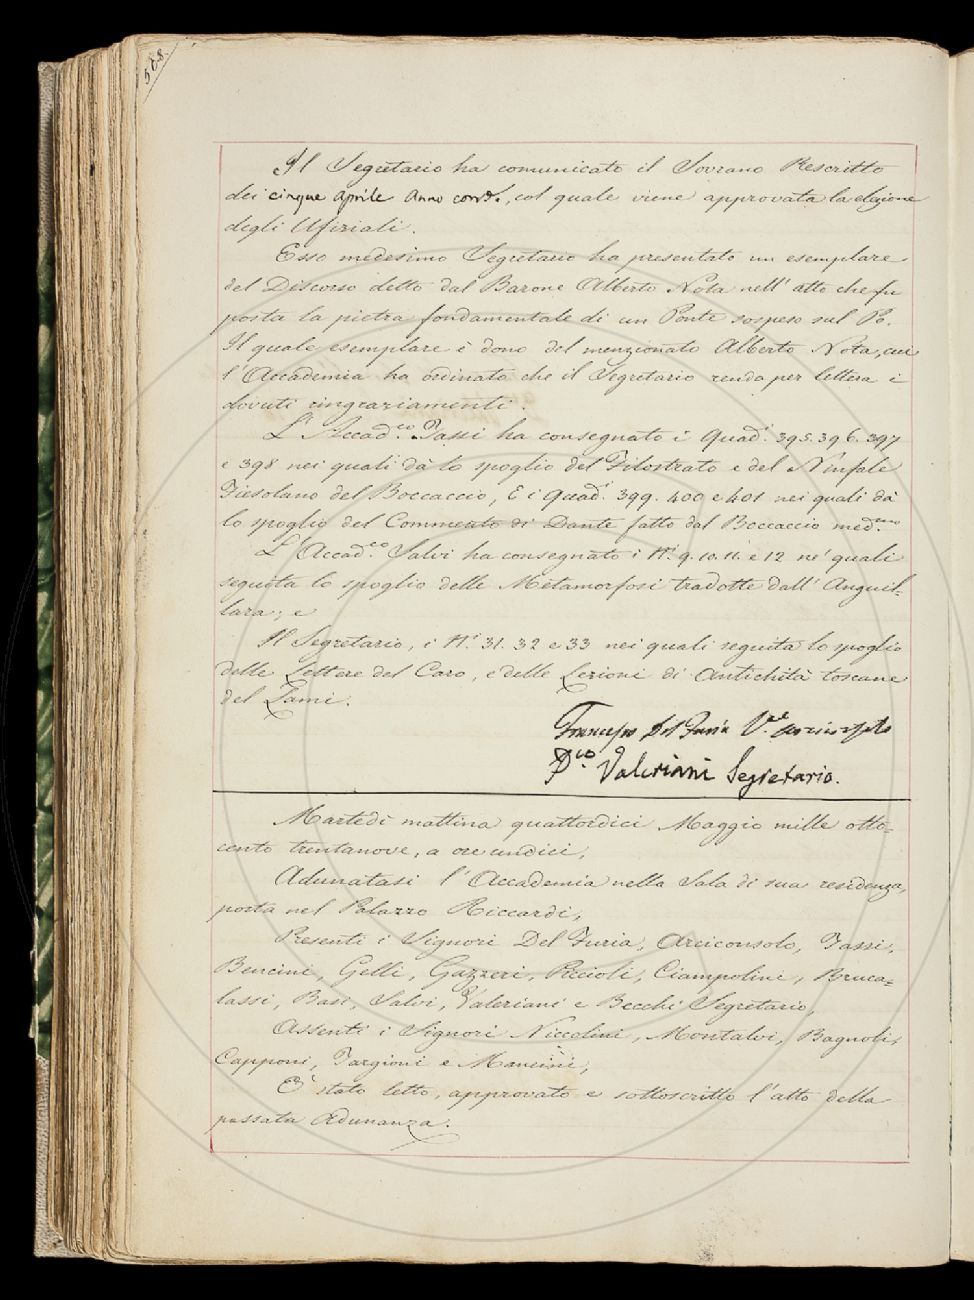 588
Il Segretario ha comunicato il Sovrano Rescritto
dei cinque Aprile Anno corr.e, col quale viene approvata la elezione
degli Ufiziali.
Esso medesimo Segretario ha presentato un esemplare
del Discorso detto dal Barone Alberto Nota nell'atto che fu
posta la pietra fondamentale di un Ponte sospeso sul Po.
Il quale esemplare è dono del menzionato Alberto Nota, cui
l'Accademia ha ordinato che il Segretario renda per lettera i
dovuti ringraziamenti.
L'Accad.co Tassi ha consegnato i Quad.i 395. 396. 397
e 398 nei quali dà lo spoglio del Filostrato e del Ninfale
Fiesolano del Boccaccio, E i Quad.i 399. 400 e 401 nei quali dà
lo spoglio del Commento di Dante fatto dal Boccaccio med.mo
L'Accad.co Salvi ha consegnato i N.i 9. 10. 11. e 12 ne' quali
seguita lo spoglio delle Metamorfosi tradotte dall'Anguil-
lara; e
Il Segretario, i N.i 31. 32 e 33 nei quali seguita lo spoglio
delle Lettere del Caro, e delle Lezioni di Antichità toscane
del Lami.
Francesco Del Furia V.e
D.co Valeriani Segretario.
Martedì mattina quattordici Maggio mille otto-
cento trentanove, a ore undici,
Adunatasi l'Accademia nella Sala di sua residenza,
posta nel Palazzo Riccardi,
Presenti i Signori Del Furia, Arciconsolo, Tassi,
Bencini, Gelli, Gazzeri, Piccioli, Ciampolini, Bruca-
lassi, Basi, Salvi, Valeriani e Becchi Segretario,
Assenti i Signori Niccolini, Montalvi, Bagnoli,
Capponi, Targioni e Mancini,
È stato letto, approvato e sottoscritto l'atto della
passata Adunanza.